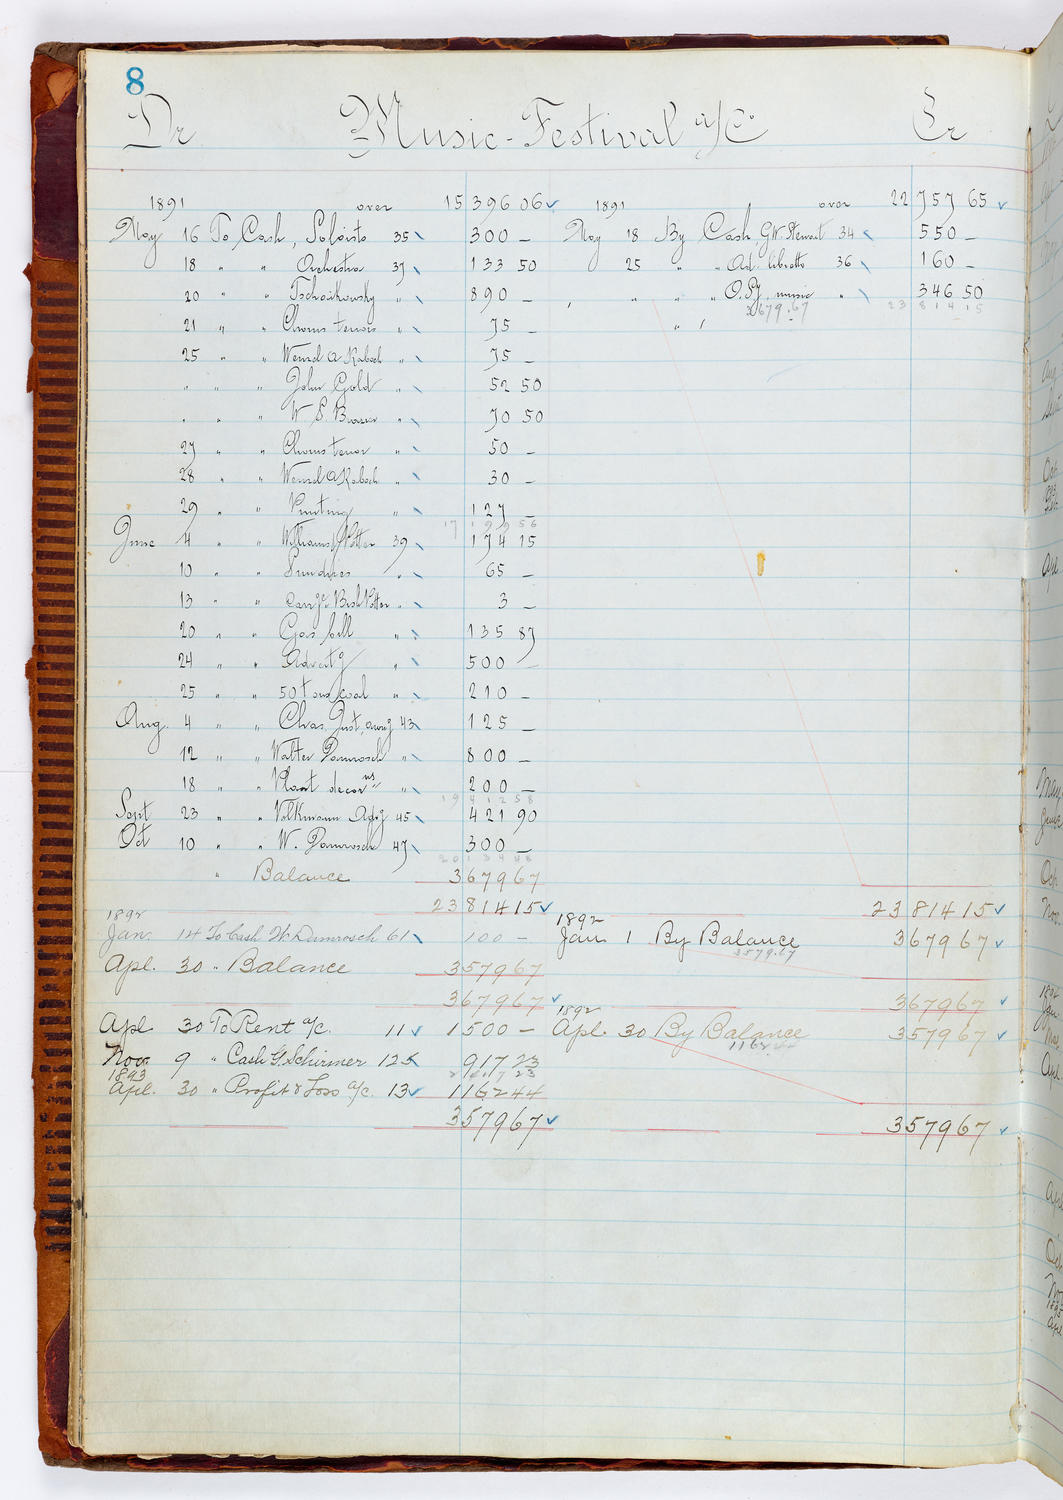 8
Dr Music-Festival a/c Cr
1891 over 15 396 06 ✓ 1891 over 22 757 65 ✓
May 16 To Cash, Soloists 35 300 — May 18 By Cash, G.W. Stewart 34 550 —
18 " " Orchestra 37 133 50 25 " " Ad. libretto 36 160 —
20 " " Tschaikowsky " 890 — " " " O. Dj. music " 346 50
3679.67 23 814 15
21 " " Chorus tenors " 75 —
25 " " Wenzel A Raboch " 75 —
" " " John Gold " 52 50
" " " W S. " 70 50
27 " " Chorus tenor " 50 —
28 " " Wenzel A Raboch " 30 —
29 " " Printing " 127 —
June 4 " " Williams & Potter 39 174 15
10 " " Sundries " 65 —
13 " " Carrge Bish Potter " 3 —
20 " " Gas bill " 135 87
24 " " Advertg " 500 —
25 " " 50 tons coal " 210 —
Aug. 4 " " Chas. 43 125 —
12 " " Walter Damrosch " 800 —
18 " " Plant decorns " 200 —
19 412 58
Sept 23 " " Volkmann 45 421 90
Oct 10 " " W. Damrosch 47 300 —
20 134 48
" Balance 3679 67
23814 15 ✓ 23 814 15 ✓
1892 1892
Jan. 14 To Cash W. Damrosch 61 100 — Jan. 1 By Balance 3679 67 ✓
3579.67
Apl. 30 " Balance 3579 67
3679 67 ✓ 3679 67 ✓
1892
Apl 30 To Rent a/c. 11 ✓ 1500 — Apl. 30 By Balance 3579 67 ✓
1162.44
Nov. 9 " Cash G. Schirmer 125 917 23
1893
2417 23
Apl. 30 " Profit & Loss a/c. 13 ✓ 1162 44
3579 67 ✓ 3579 67 ✓